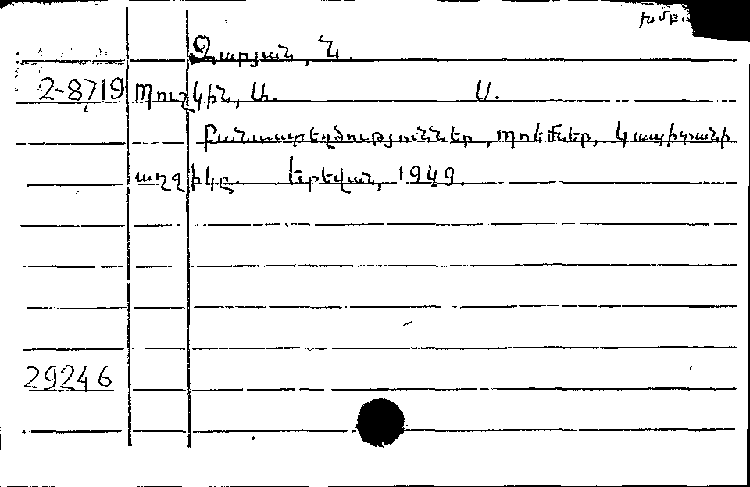 խմբ.
Զարյան, Ն.
2-8719 Պուշկին, Ա. Ս.
Բանաստեղծություններ, պոեմներ, Կապիտանի
աղջիկը. Երեվան, 1949.
29246